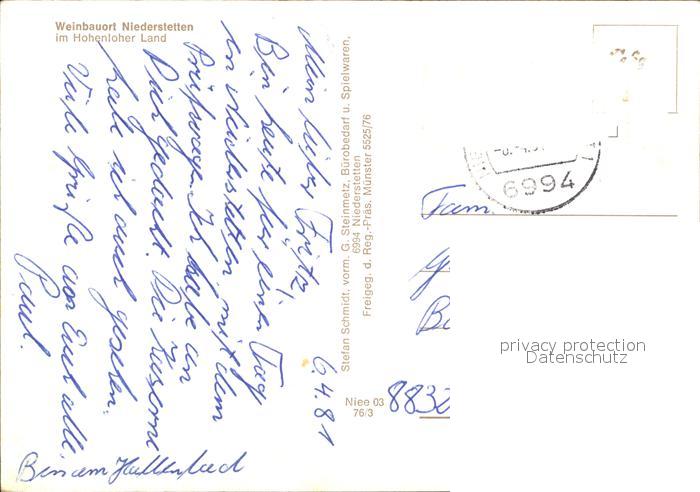 Weinbauort Niederstetten
im Hohenloher Land
6.4.81
Mein lieber Fritz,
Bin heute für einen Tag
in Niederstetten mit dem
Prüfwagen. Ich habe an
Dich gedacht. Die Kaserne
habe ich auch gesehen.
Viele Grüße an Euch alle,
Paul.
Bin am Hallenbad
Stefan Schmidt, vorm. G. Steinmetz, Bürobedarf u. Spielwaren,
6994 Niederstetten
Freigeg. d. Reg.-Präs. Münster 5525/76
Niee 03
76/3
6994
Fam.
8832
privacy protection
Datenschutz